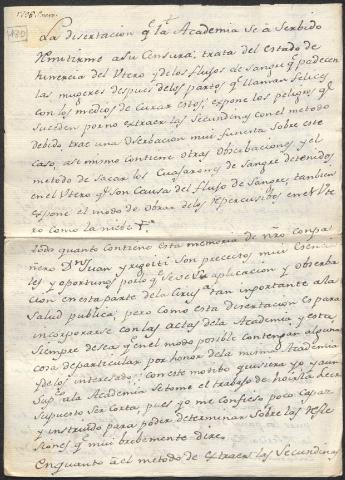 1796 Enero
130
La disertacion qᵉ la Academia se á Serbido
Remitirme asu Censura; trata del estado de
Funerencia del Utero y de los flujos de Sangre qᵉ padecen
las mugeres despues de los partos qᵉ llaman felices
con los medios de Curar estos; expone los peligros qᵉ
Suceden por no extraer las Secundinas con el metodo
debido, trae una Obserbacion mui funesta Sobre este
caso, asi mismo contiene otras Obserbaciones y el
metodo de Sacar los Cuajarones de Sangre detenidos
en el Utero qᵉ son Causa del flujo de Sangre; tambien
expone el modo de obrar de los repercusibos en el Ute
ro como la niebe &ᵃ
todo quanto contiene esta memoria de nr̃o conpa
ñero Dⁿ Juan Yrigoiti Son precisos mui esencia
les y oportunos por lo qᵉ se ve Su aplicacion y obserba
cion en esta parte de la Ciruxᵃ tan importante a la
Salud publica; pero como esta disertacion es para
incorporarse con las actas de la Academia y esta
Siempre desea qᵉ en el modo posible contengan alguna
cosa de particular por honor de la misma Academia
y de los interesados; con este motibo quisiera yo y aun
Supᶜᵒ a la Academia se tome el trabajo de hoirla leer
Supuesto Ser corta, pues yo me confieso poco Capaz
e instruido para poder determinar Sobre las refle
siones qᵉ mui brebemente dire.
En quanto a el metodo de extraer las Secundinas